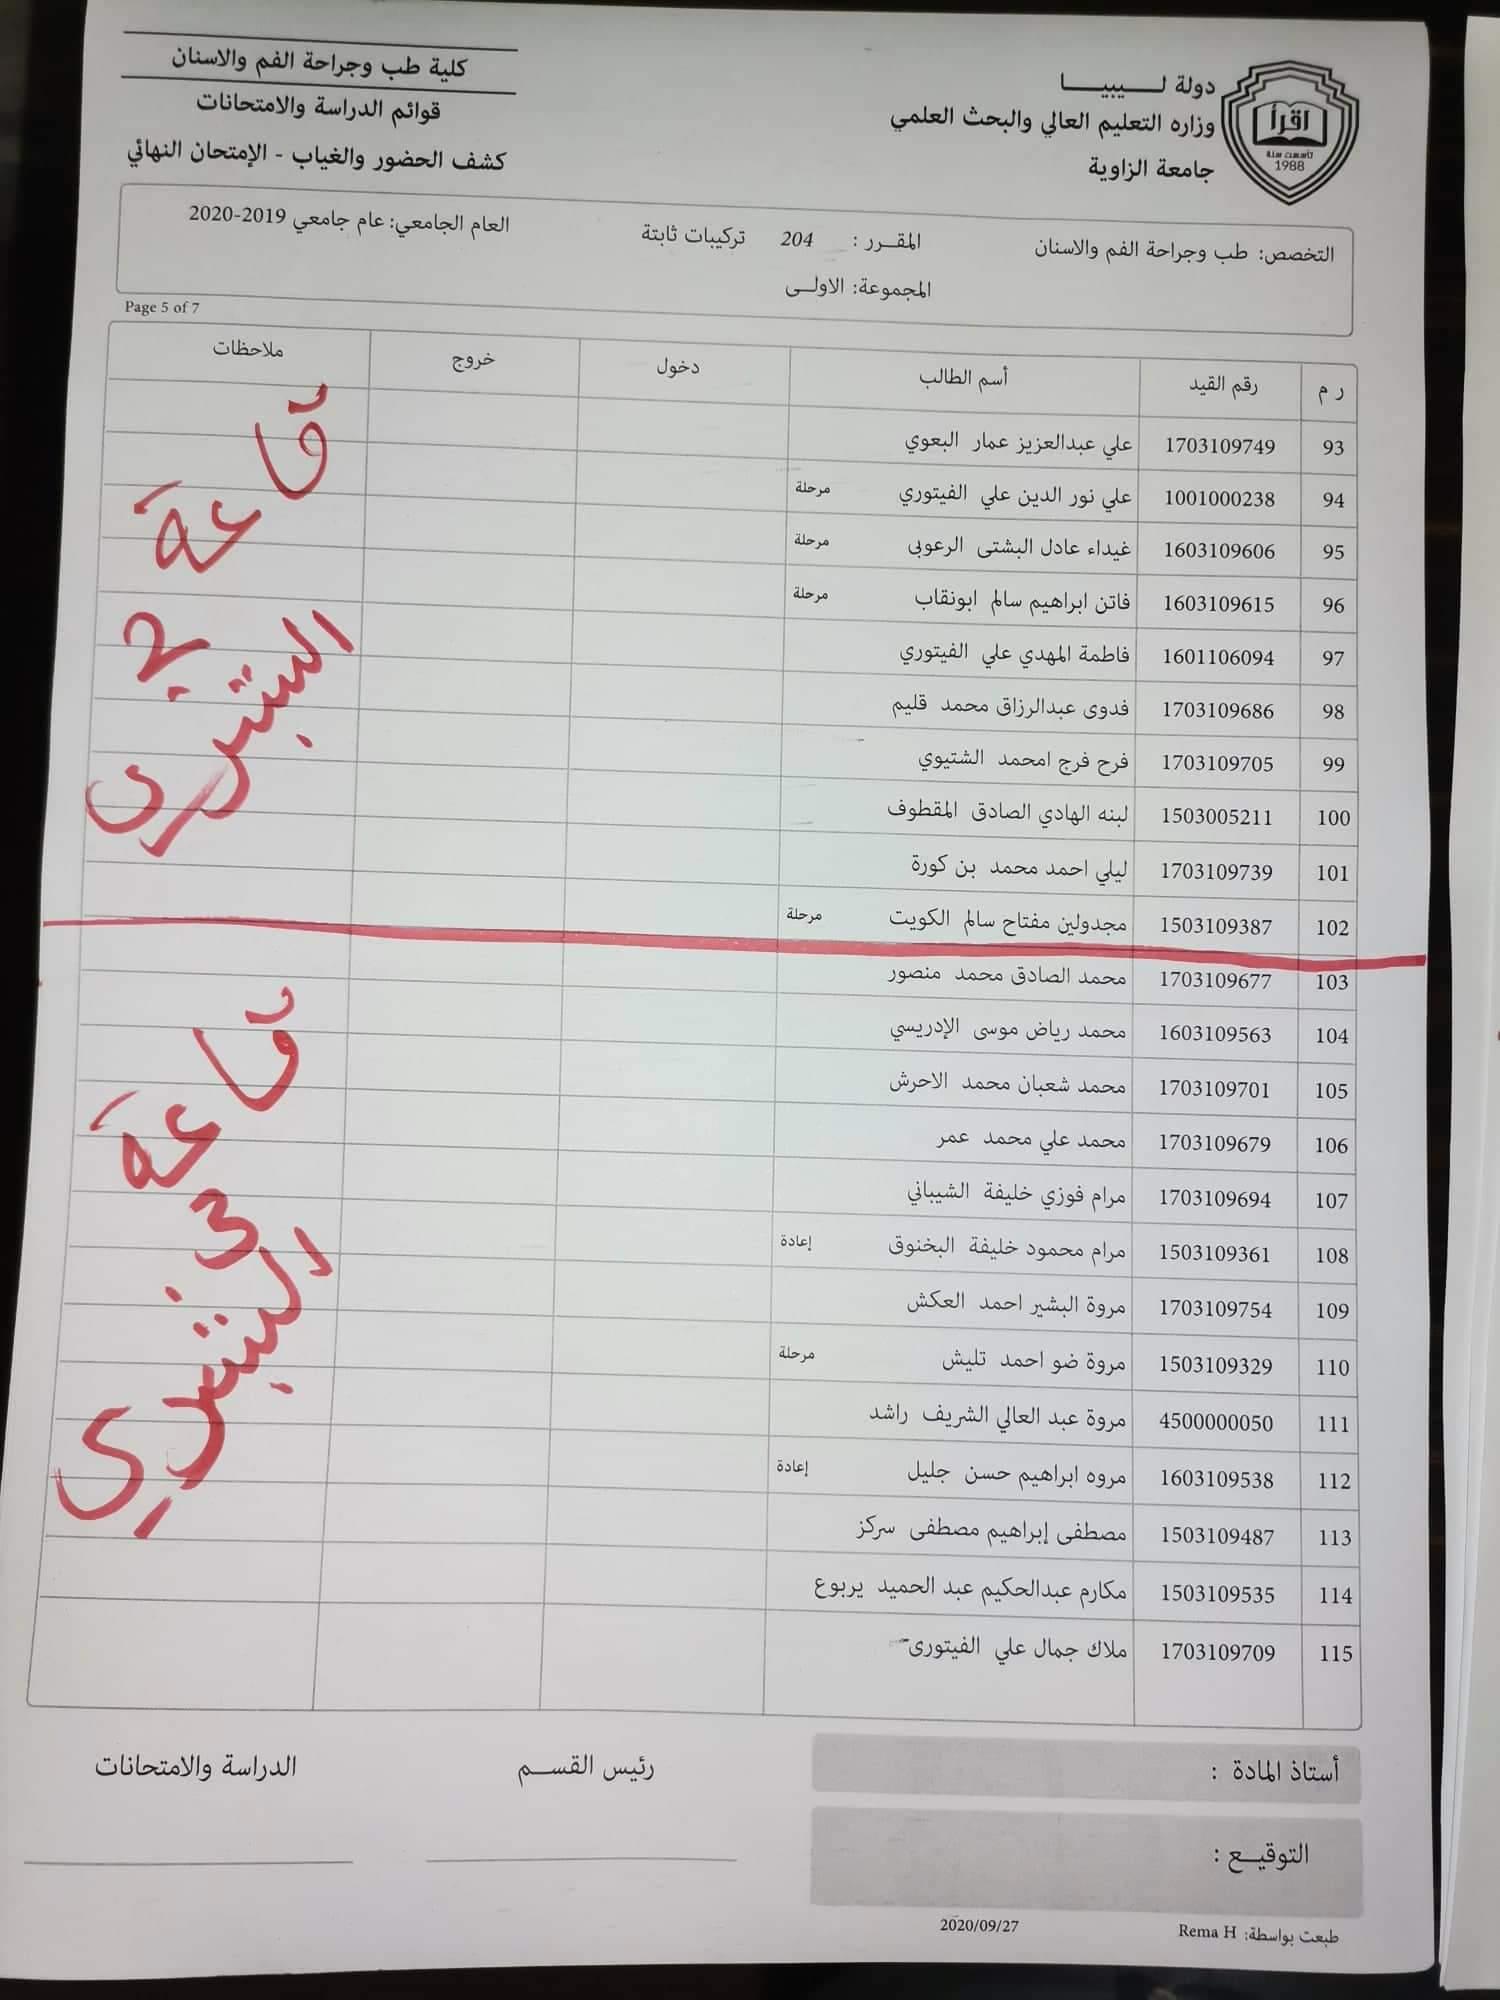 دولة لـــــيبيـــــا
وزاره التعليم العالي والبحث العلمي
جامعة الزاوية
اقرأ
تأسست سنة
1988
كلية طب وجراحة الفم والاسنان
قوائم الدراسة والامتحانات
كشف الحضور والغياب - الإمتحان النهائي
التخصص: طب وجراحة الفم والاسنان المقــرر : 204 تركيبات ثابتة العام الجامعي: عام جامعي 2019-2020
المجموعة: الاولــى
Page 5 of 7
ر م رقم القيد أسم الطالب دخول خروج ملاحظات
93 1703109749 علي عبدالعزيز عمار البعوي
94 1001000238 علي نور الدين علي الفيتوري مرحلة
95 1603109606 غيداء عادل البشتى الرعوبى مرحلة
96 1603109615 فاتن ابراهيم سالم ابونقاب مرحلة
97 1601106094 فاطمة المهدي علي الفيتوري
98 1703109686 فدوى عبدالرزاق محمد قليم
99 1703109705 فرح فرج امحمد الشتيوي
100 1503005211 لبنه الهادي الصادق المقطوف
101 1703109739 ليلي احمد محمد بن كورة
102 1503109387 مجدولين مفتاح سالم الكويت مرحلة
قاعة 2
103 1703109677 محمد الصادق محمد منصور
104 1603109563 محمد رياض موسى الإدريسي
105 1703109701 محمد شعبان محمد الاحرش
106 1703109679 محمد علي محمد عمر
107 1703109694 مرام فوزي خليفة الشيباني
108 1503109361 مرام محمود خليفة البخنوق إعادة
109 1703109754 مروة البشير احمد العكش
110 1503109329 مروة ضو احمد تليش مرحلة
111 4500000050 مروة عبد العالي الشريف راشد
112 1603109538 مروه ابراهيم حسن جليل إعادة
113 1503109487 مصطفى إبراهيم مصطفى سركز
114 1503109535 مكارم عبدالحكيم عبد الحميد يربوع
115 1703109709 ملاك جمال علي الفيتورى
قاعة 3
أستاذ المادة : رئيس القســم الدراسة والامتحانات
التوقيــع :
طبعت بواسطة: Rema H 2020/09/27